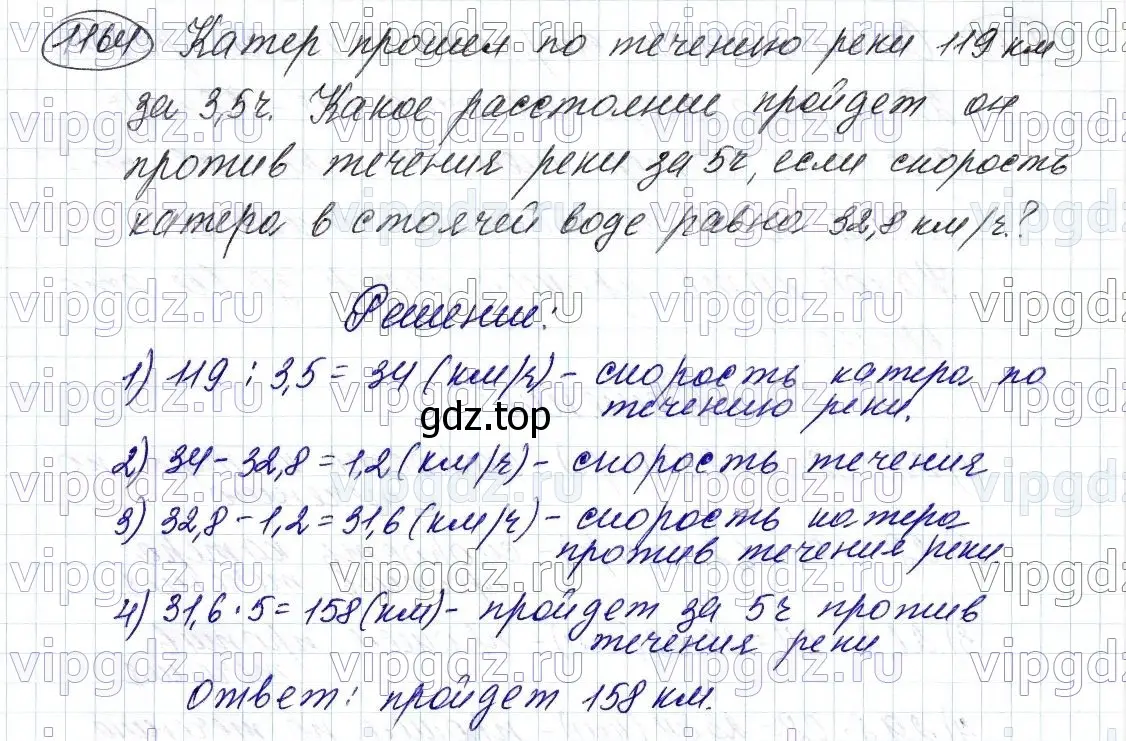 1164 Катер прошел по течению реки 119 км
за 3,5ч. Какое расстояние пройдет он
против течения реки за 5ч, если скорость
катера в стоячей воде равна 32,8 км/ч?
Решение:
1) 119 : 3,5 = 34 (км/ч) - скорость катера по
течению реки.
gdz.top
2) 34 - 32,8 = 1,2 (км/ч) - скорость течения
3) 32,8 - 1,2 = 31,6 (км/ч) - скорость катера
против течения реки
4) 31,6 · 5 = 158 (км) - пройдет за 5ч против
течения реки
Ответ: пройдет 158 км.
vipgdz.ru